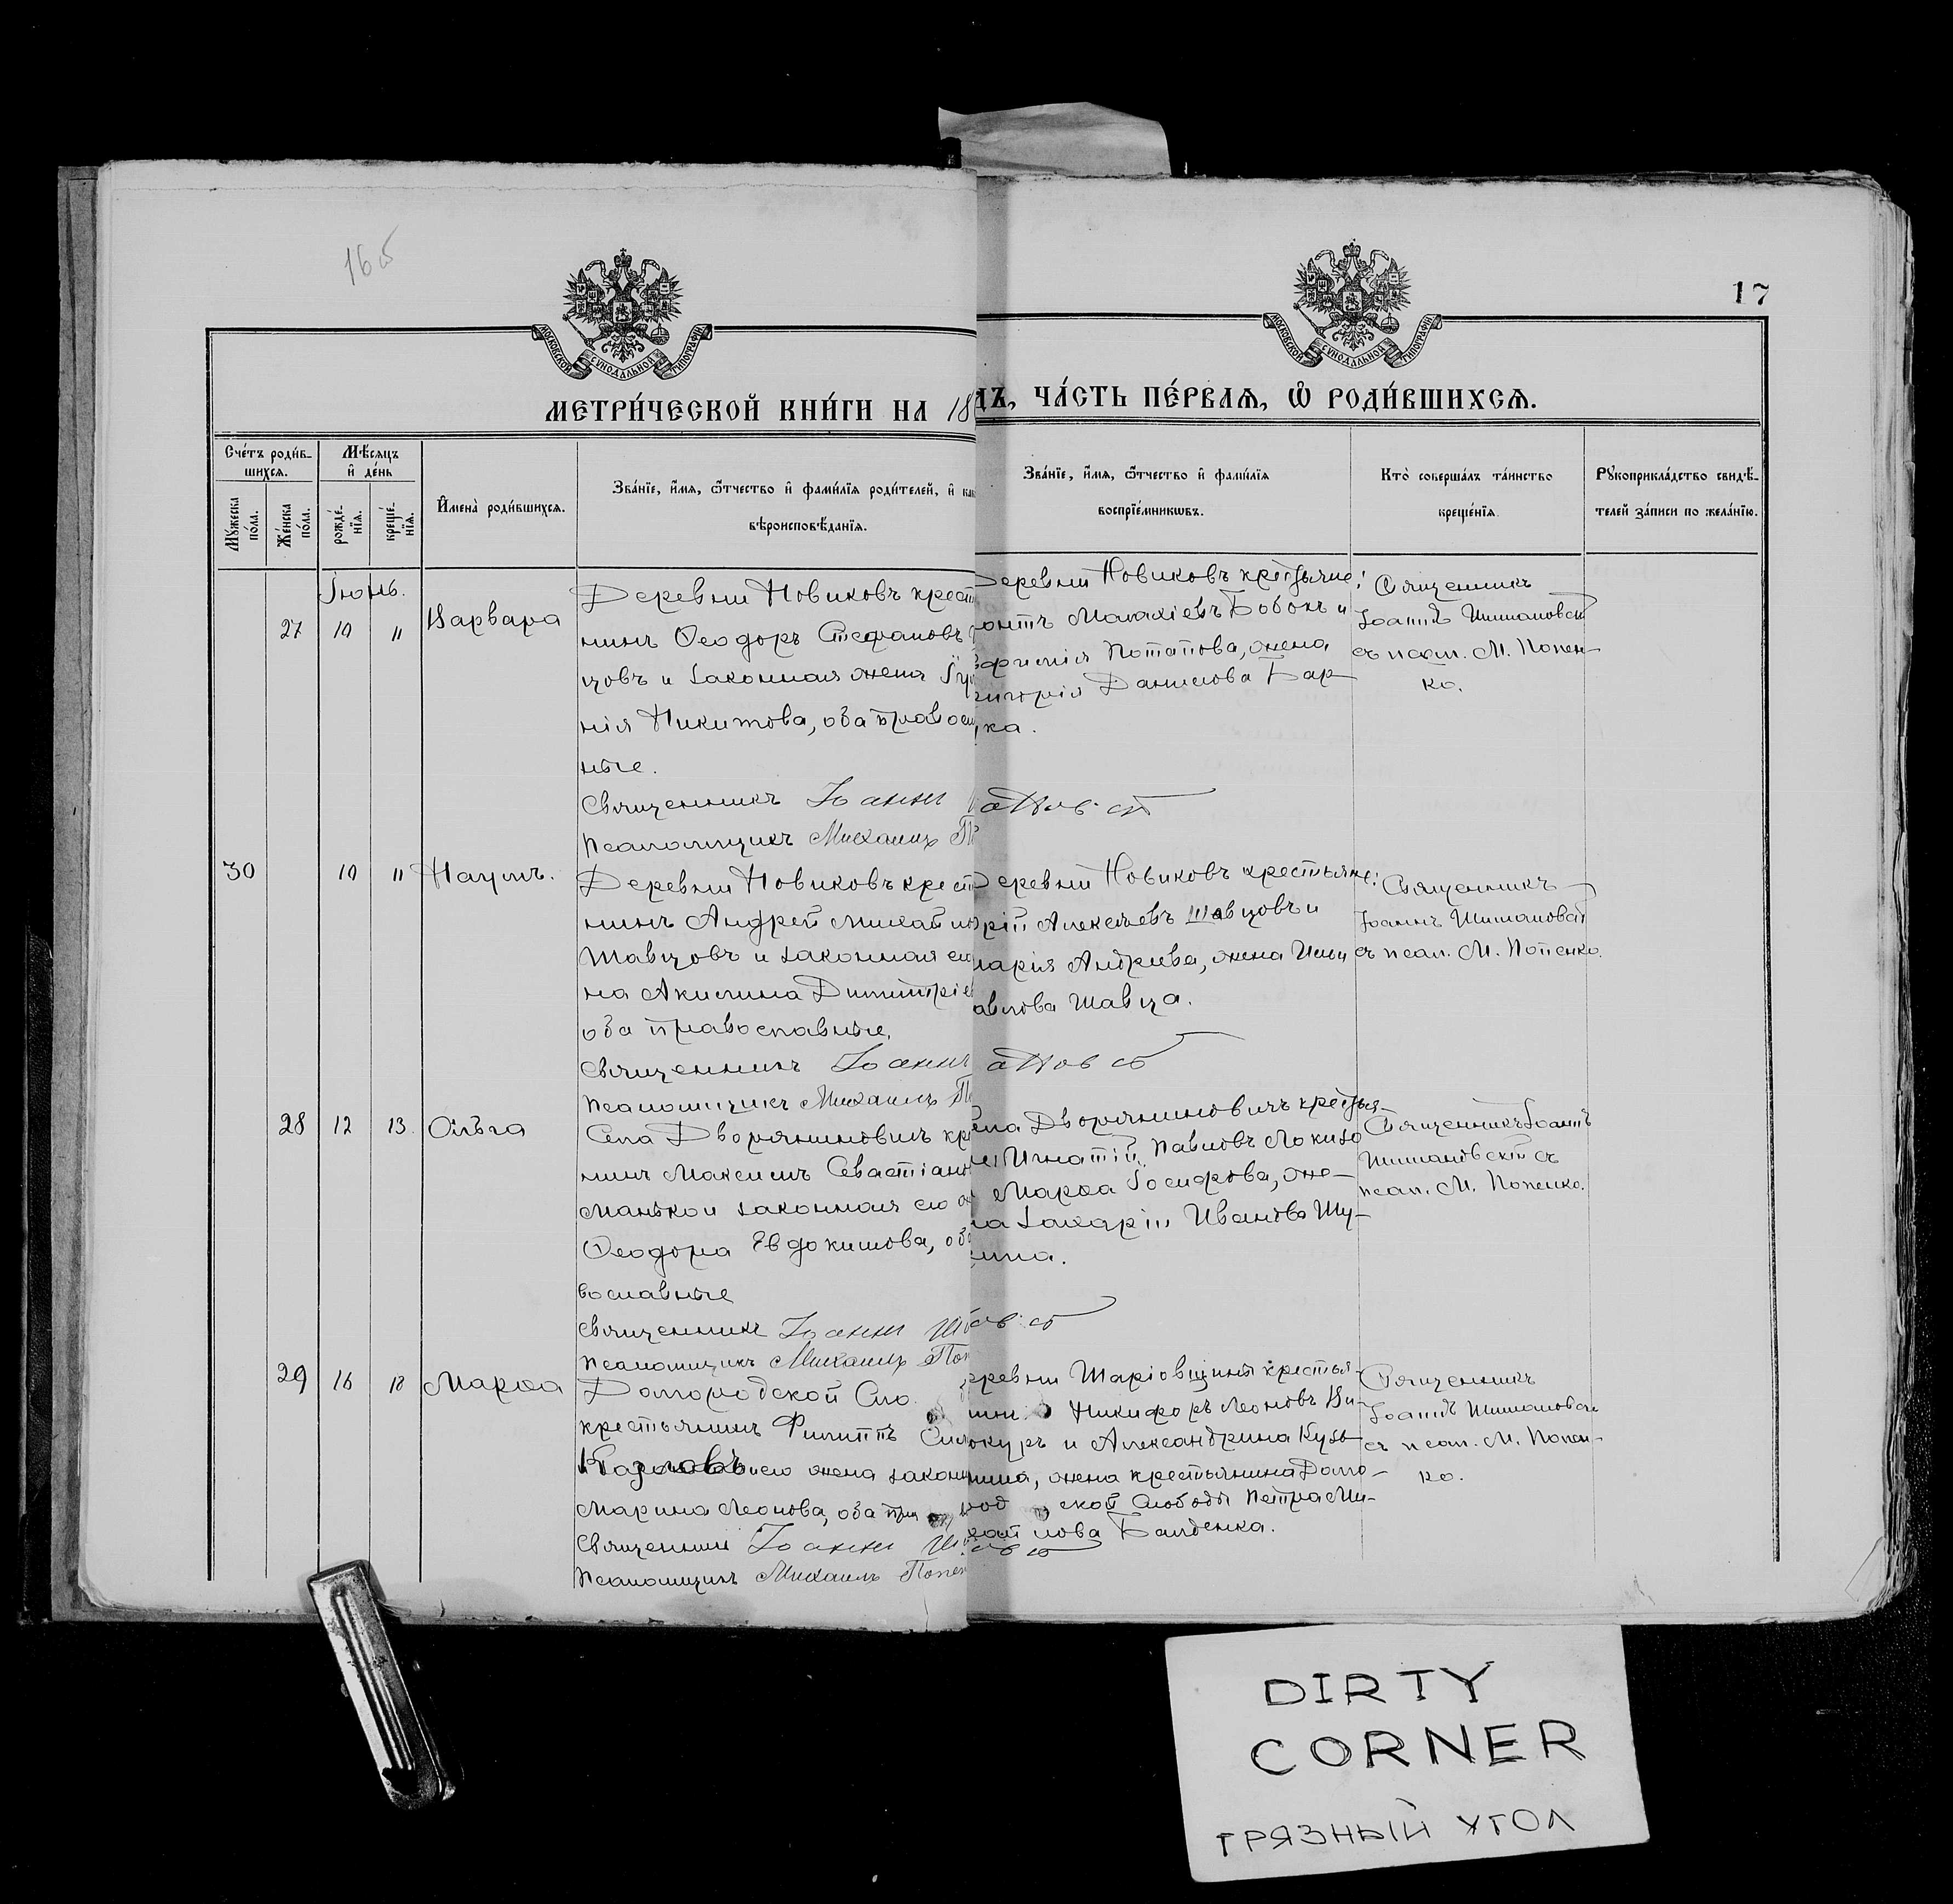 16 об
17
МОСКОВСКОЙ СУНОДАЛЬНОЙ ТИПОГРАФІИ
МОСКОВСКОЙ СУНОДАЛЬНОЙ ТИПОГРАФІИ
МЕТРИ́ЧЕСКОЙ КНИ́ГИ НА 18
ДЪ, ЧА́СТЬ ПЕ́РВАЯ, Ѡ҆ РОДИ́ВШИХСЯ.
Сче́тъ роди́в-
шихся.
Мѣ́сяцъ
и҆ де́нь
Му́жеска
по́ла.
Же́нска
по́ла.
рожде́-
нїя.
креще́-
нїя.
И҆мена̀ роди́вшихся.
Зва́нїе, и҆́мя, ѻ҆́тчество и҆ фами́лїя роди́телей, и҆
вѣроисповѣ́данїя.
Зва́нїе, и҆́мя, ѻ҆́тчество и҆ фами́лїя
воспрїе́мниковъ.
Кто̀ соверша́лъ та́инство
креще́нїя.
Рукоприкла́дство свидѣ́-
телей за́писи по жела́нїю.
Іюнь.
27 10 " Варвара
Деревни Новиковъ крест
нинъ Ѳеодоръ Стефановъ
цовъ и законная жена
нія Никитова, оба правосл
ные.
Священникъ Іоаннъ
Псаломщикъ Михаилъ П
Деревни Новиковъ крестьяне:
онтъ Малахіевъ Бобокъ и
фимія Потапова, жена
Григорія Данилова Бар-
ка.
Священникъ
Іоаннъ Шимановскій
съ псал. М. Попен-
ко.
30 10 " Наумъ.
Деревни Новиковъ крест
нинъ Андрей Михайло
Шавцовъ и законная его
на Акилина Димитріе
оба православные.
Священникъ Іоаннъ
Псаломщикъ Михаилъ П
Деревни Новиковъ крестьяне:
рій Алексѣевъ Шавцовъ и
Марія Андреева, жена Ильи
авлова Шавца.
Священникъ
Іоаннъ Шимановскій
съ псал. М. Попенко.
28 12 13 Ольга
Села Дворяниновичъ кре
нинъ Максимъ Севастіано
Манько и законная его ж
Ѳеодора Евдокимова, об
вославные
Священникъ Іоаннъ Ши
Псаломщикъ Михаилъ Поп
ела Дворяниновичъ крестья-
Игнатій Павловъ Локизо
Марѳа Іосифова, же-
на Захаріи Иванова Шу-
Священникъ Іоаннъ
Шимановскій съ
псал. М. Попенко.
29 16 18 Марѳа
Домородской Сло
крестьянинъ Филиппъ
Козловъ и его жена законн
Марина Леонова, оба пра
Священникъ Іоаннъ Ши
Псаломщикъ Михаилъ Попен
еревни Шаріовщины крестья-
Никифоръ Леоновъ Ви-
нокуръ и Александрина Кузь-
мина, жена крестьянина Домо-
род ской Слободы Петра Ми-
хайлова Балденка.
Священникъ
Іоаннъ Шимановскій
съ псал. М. Попен-
ко.
DIRTY
CORNER
ГРЯЗНЫЙ УГОЛ